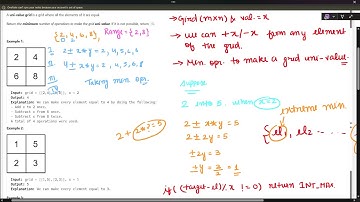 A uni-value grid is a grid where all the elements of it are equal.
Return the minimum number of operations to make the grid uni-value. If it is not possible, return -1.
Example 1:
2 4
6 8
Input: grid = [[2,4],[6,8]], x = 2
Output: 4
Explanation: We can make every element equal to 4 by doing the following:
- Add x to 2 once.
- Subtract x from 6 once.
- Subtract x from 8 twice.
A total of 4 operations were used.
Example 2:
1 5
2 3
Input: grid = [[1,5],[2,3]], x = 1
Output: 5
Explanation: We can make every element equal to 3.
{2, 4, 6, 8},
Range: {2,8}
2 ± x * y = 2, 4, 5, 6, 8
4 ± x * y = 2, 4, 5, 6, 8
Taking min opr.
2 + 2*?=5
→ Grid (m×n) & val = x
→ we can +x/-x from any element
of the grid.
→ Min. opr. to make a grid uni-value.
Suppose
2 into 5, when x=2
2 ± x * y = 5
2 ± 2y = 5
±2y = 3
±y = 3/2 = 1
{el1, el2 - - -
if ( (target-el)%x != 0) return INT_MAX